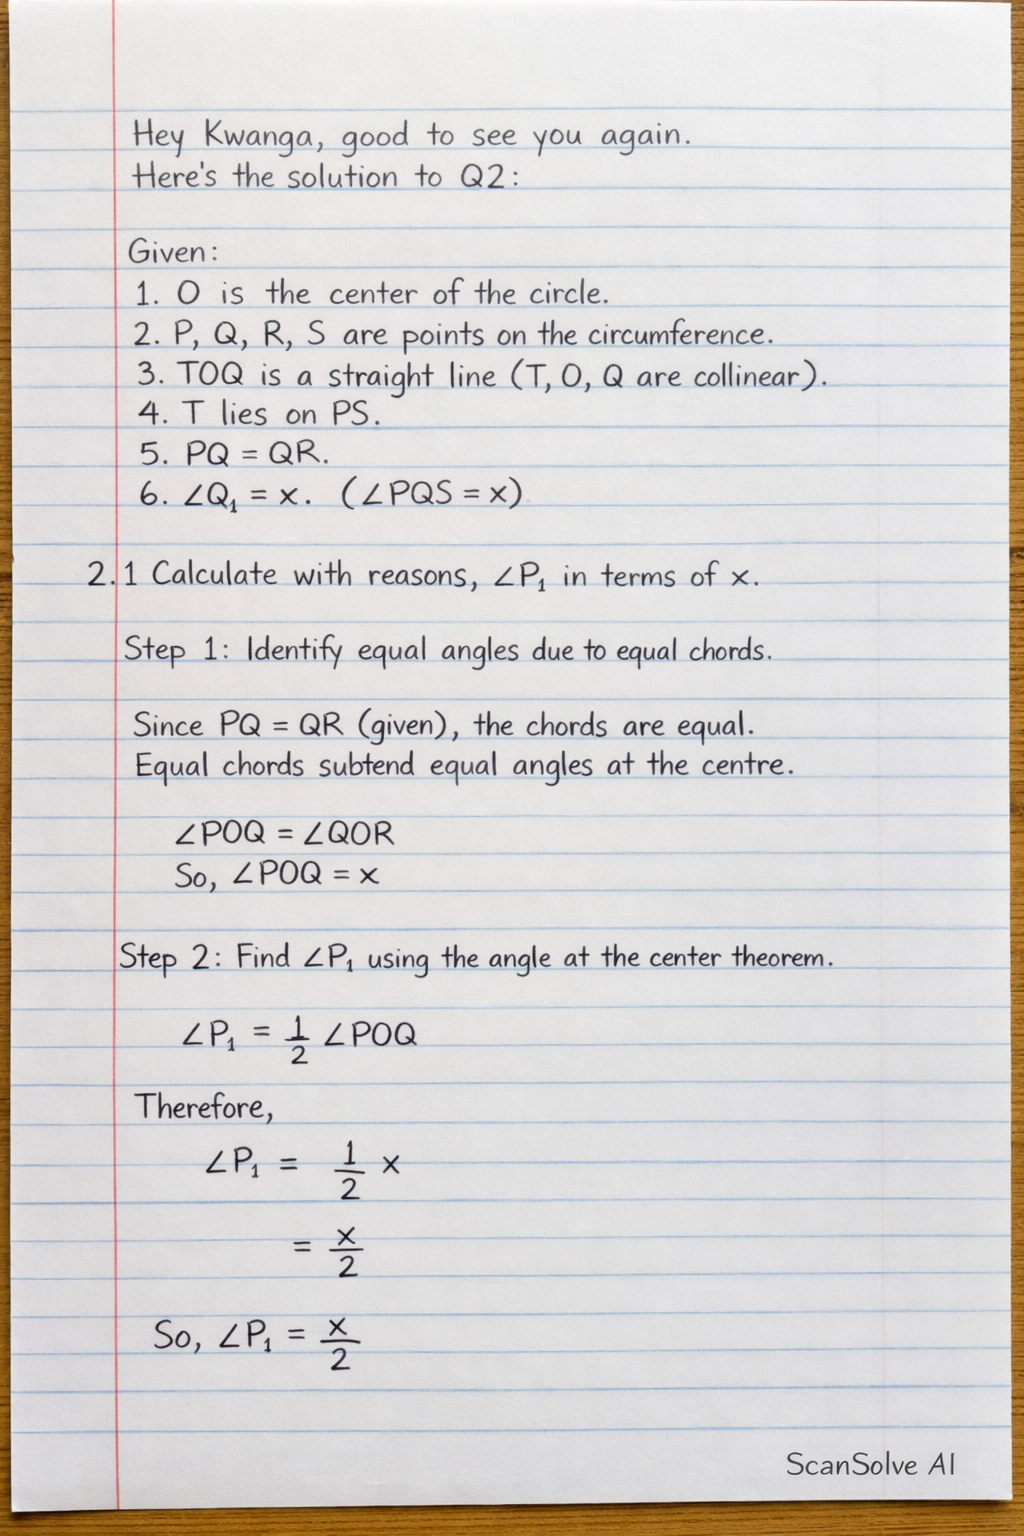 Hey Kwanga, good to see you again.
Here's the solution to Q2:
Given:
1. O is the center of the circle.
2. P, Q, R, S are points on the circumference.
3. TOQ is a straight line (T, O, Q are collinear).
4. T lies on PS.
5. PQ = QR.
6. ∠Q₁ = x. (∠PQS = x)
2.1 Calculate with reasons, ∠P₁ in terms of x.
Step 1: Identify equal angles due to equal chords.
Since PQ = QR (given), the chords are equal.
Equal chords subtend equal angles at the centre.
∠POQ = ∠QOR
So, ∠POQ = x
Step 2: Find ∠P₁ using the angle at the center theorem.
∠P₁ = 1/2 ∠POQ
Therefore,
∠P₁ = 1/2 x
= x/2
So, ∠P₁ = x/2
ScanSolve AI